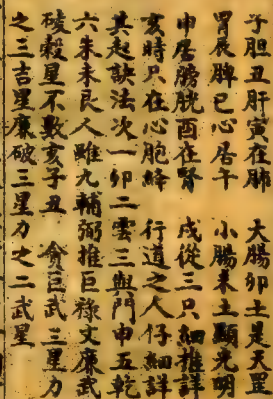 子胆丑肝寅在肺　大腸卯土是天罡
胃辰脾巳心居午　小腸未土顯光明
申居膀胱酉在腎　戌從三只細推詳
亥時只在心胞絡　行道之人仔細詳
其起訣法次一卯二雲三與門申五乾
六未未艮人雖九輔弼推巨祿文廉武
破穀星不數亥子丑　貪巨武三星力
之三吉星廉破三星力之二武星